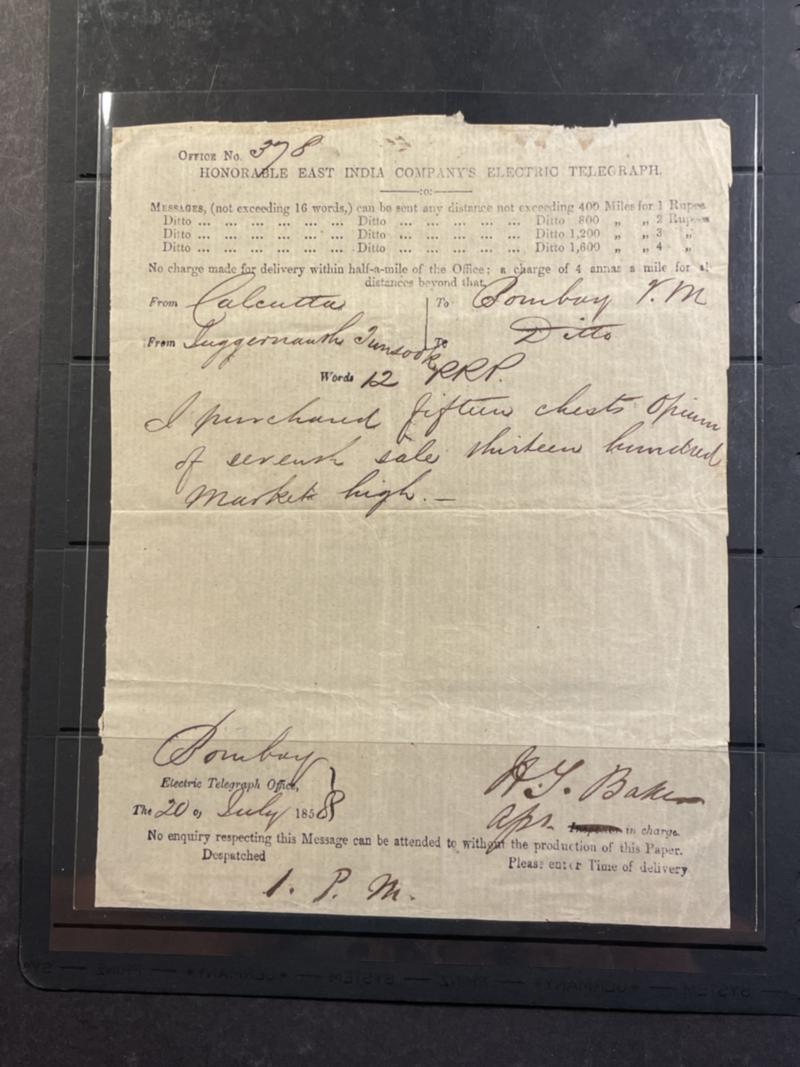 OFFICE No. 378
HONORABLE EAST INDIA COMPANY'S ELECTRIC TELEGRAPH.
:o:
MESSAGES, (not exceeding 16 words,) can be sent any distance not exceeding 400 Miles for 1 Rupee
Ditto ... ... ... ... ... ... Ditto ... ... ... ... ... Ditto 800 „ „ 2 Rupees
Ditto ... ... ... ... ... ... Ditto ... ... ... ... ... Ditto 1,200 „ „ 3 „
Ditto ... ... ... ... ... ... Ditto ... ... ... ... ... Ditto 1,600 „ „ 4 „
No charge made for delivery within half-a-mile of the Office; a charge of 4 annas a mile for al
distances beyond that.
From Calcutta To Bombay V. M
From Juggernauth Junsook To Ditto
Words 12 RRP.
I purchased fifteen chests Opium
of seventh sale thirteen hundred
Market high. —
Bombay
Electric Telegraph Office,
The 20 of July 1858
H. Baker
in charge.
No enquiry respecting this Message can be attended to without the production of this Paper.
Despatched
Please enter Time of delivery
1. P. M.
PRINZ — SYSTEM — GERMANY